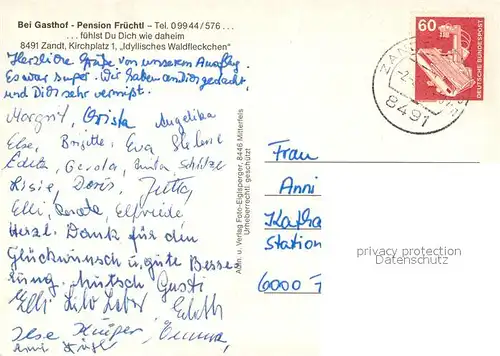 Bei Gasthof - Pension Früchtl – Tel. 0 99 44 / 576 . . .
. . . fühlst Du Dich wie daheim
8491 Zandt, Kirchplatz 1, „Idyllisches Waldfleckchen"
Herzliche Grüße von unserem Ausflug.
Es war super. Wir haben an Dich gedacht
und Dich sehr vermißt.
Margrit, Christa Angelika
Else, Brigitte, Eva
Edith, Gerda, Schütze
Doris, Jutta,
Elli, Renate, Elfriede
Herzl. Dank für den
Glückwunsch u. gute Besse-
rung. Gusti
Elli Edith
Ilse Emma,
Abm. u. Verlag Foto-Eiglsperger, 8446 Mitterfels
Urheberrechtl. geschützt
60
DEUTSCHE BUNDESPOST
ZANDT
8491
Frau
Anni
Station
6000
privacy protection
Datenschutz